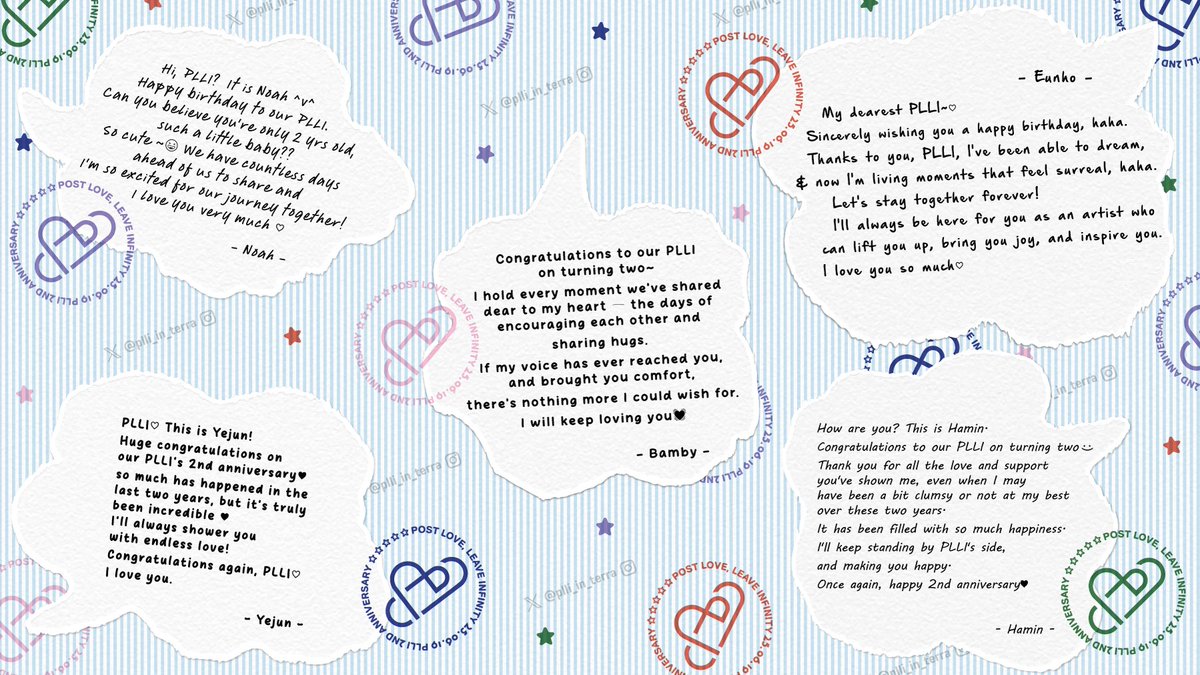 Hi, PLLI? It is Noah ^v^
Happy birthday to our PLLI.
Can you believe you're only 2 yrs old,
such a little baby??
So cute ~😀 We have countless days
ahead of us to share and
I'm so excited for our journey together!
I love you very much ♡
- Noah -
- Eunho -
My dearest PLLI~♡
Sincerely wishing you a happy birthday, haha.
Thanks to you, PLLI, I've been able to dream,
& now I'm living moments that feel surreal, haha.
Let's stay together forever!
I'll always be here for you as an artist who
can lift you up, bring you joy, and inspire you.
I love you so much♡
Congratulations to our PLLI
on turning two~
I hold every moment we've shared
dear to my heart — the days of
encouraging each other and
sharing hugs.
If my voice has ever reached you,
and brought you comfort,
there's nothing more I could wish for.
I will keep loving you♥
- Bamby -
PLLI♡ This is Yejun!
Huge congratulations on
our PLLI's 2nd anniversary♥
so much has happened in the
last two years, but it's truly
been incredible ♥
I'll always shower you
with endless love!
Congratulations again, PLLI♡
I love you.
- Yejun -
How are you? This is Hamin.
Congratulations to our PLLI on turning two☺
Thank you for all the love and support
you've shown me, even when I may
have been a bit clumsy or not at my best
over these two years.
It has been filled with so much happiness.
I'll keep standing by PLLI's side,
and making you happy.
Once again, happy 2nd anniversary♥
- Hamin -
POST LOVE, LEAVE INFINITY 25.06.19 PLLI 2ND ANNIVERSARY ☆☆☆☆
POST LOVE, LEAVE INFINITY 25.06.19 PLLI 2ND ANNIVERSARY ☆☆☆☆
POST LOVE, LEAVE INFINITY 25.06.19 PLLI 2ND ANNIVERSARY ☆☆☆☆
POST LOVE, LEAVE INFINITY 25.06.19 PLLI 2ND ANNIVERSARY ☆☆☆☆
POST LOVE, LEAVE INFINITY 25.06.19 PLLI 2ND ANNIVERSARY ☆☆☆☆
@plli_in_terra
@plli_in_terra
@plli_in_terra
@plli_in_terra
@plli_in_terra